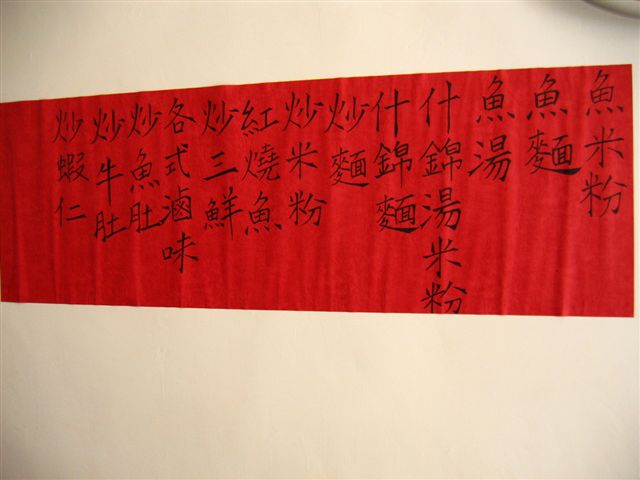 魚米粉
魚麵
魚湯
什錦湯米粉
什錦麵
炒麵
炒米粉
紅燒魚
炒三鮮
各式滷味
炒魚肚
炒牛肚
炒蝦仁